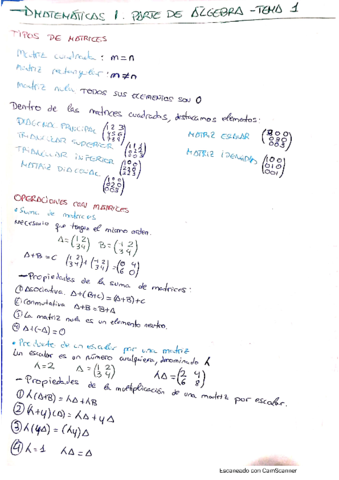 → MATEMÁTICAS I. PARTE DE ÁLGEBRA - TEMA 1
TIPOS DE MATRICES
Matriz cuadrada: m=n
Matriz rectangular: m≠n
Matriz nula TODOS SUS ELEMENTOS SON 0
Dentro de las matrices cuadradas, destacamos elementos:
DIAGONAL PRINCIPAL
TRIANGULAR SUPERIOR
TRIANGULAR INFERIOR
MATRIZ DIAGONAL
MATRIZ ESCALAR
MATRIZ IDENTIDAD (1 0 0 / 0 1 0 / 0 0 1)
OPERACIONES CON MATRICES
• Suma de matrices
Necesario que tengan el mismo orden.
A = (1 2 / 3 4)
A+B=C
— Propiedades de la suma de matrices:
① Asociativa. A+(B+C)=(A+B)+C
② Conmutativa A+B=B+A
③ La matriz nula es un elemento neutro.
④ A+(-A)=0
• Producto de un escalar por una matriz
Un escalar es un número cualquiera, denominado λ
λ=2 A=(1 2 / 3 4) λA=(2 4 / 6 8)
— Propiedades de la multiplicación de una matriz por escalar.
① λ(A+B)=λA+λB
② (λ+μ)A=λA+μA
③ λ(μA)=(λμ)A
④ λ=1 λA=A
Escaneado con CamScanner